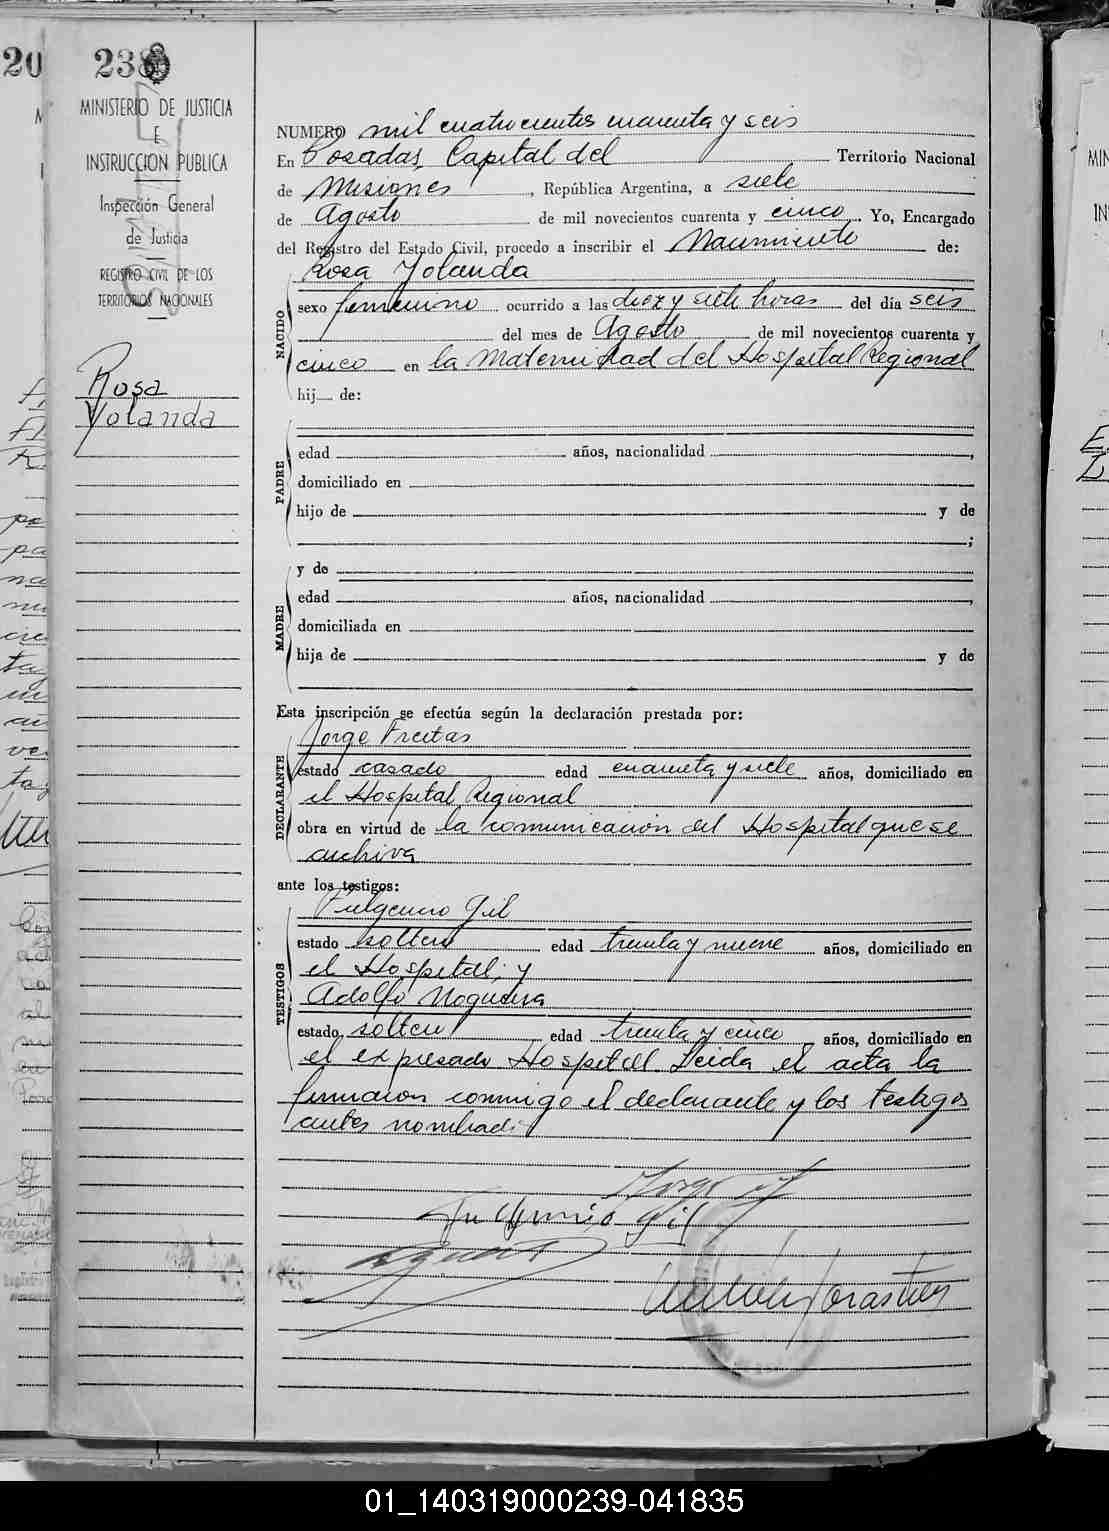 20
238
MINISTERIO DE JUSTICIA
E
INSTRUCCION PUBLICA
Inspección General
de Justicia
REGISTRO CIVIL DE LOS
TERRITORIOS NACIONALES
Rosa
Yolanda
NUMERO mil cuatrocientos cuarenta y seis
En Posadas, Capital del Territorio Nacional
de Misiones, República Argentina, a siete
de Agosto de mil novecientos cuarenta y cinco. Yo, Encargado
del Registro del Estado Civil, procedo a inscribir el Nacimiento de:
NACIDO
Rosa Yolanda
sexo femenino ocurrido a las diez y siete horas del día seis
del mes de Agosto de mil novecientos cuarenta y
cinco en la Maternidad del Hospital Regional
hij__ de:
PADRE
edad años, nacionalidad ,
domiciliado en
hijo de y de
;
MADRE
y de
edad años, nacionalidad ,
domiciliada en
hija de y de
Esta inscripción se efectúa según la declaración prestada por:
DECLARANTE
Jorge Freitas
estado casado edad cuarenta y siete años, domiciliado en
el Hospital Regional
obra en virtud de la comunicación del Hospital que se
archiva
ante los testigos:
TESTIGOS
Fulgencio Gil
estado soltero edad treinta y nueve años, domiciliado en
el Hospital; y
Adolfo Nogueira
estado soltero edad treinta y cinco años, domiciliado en
el expresado Hospital. Leida el acta la
firmaron conmigo el declarante y los testigos
antes nombrados
Fulgencio Gil
01_140319000239-041835